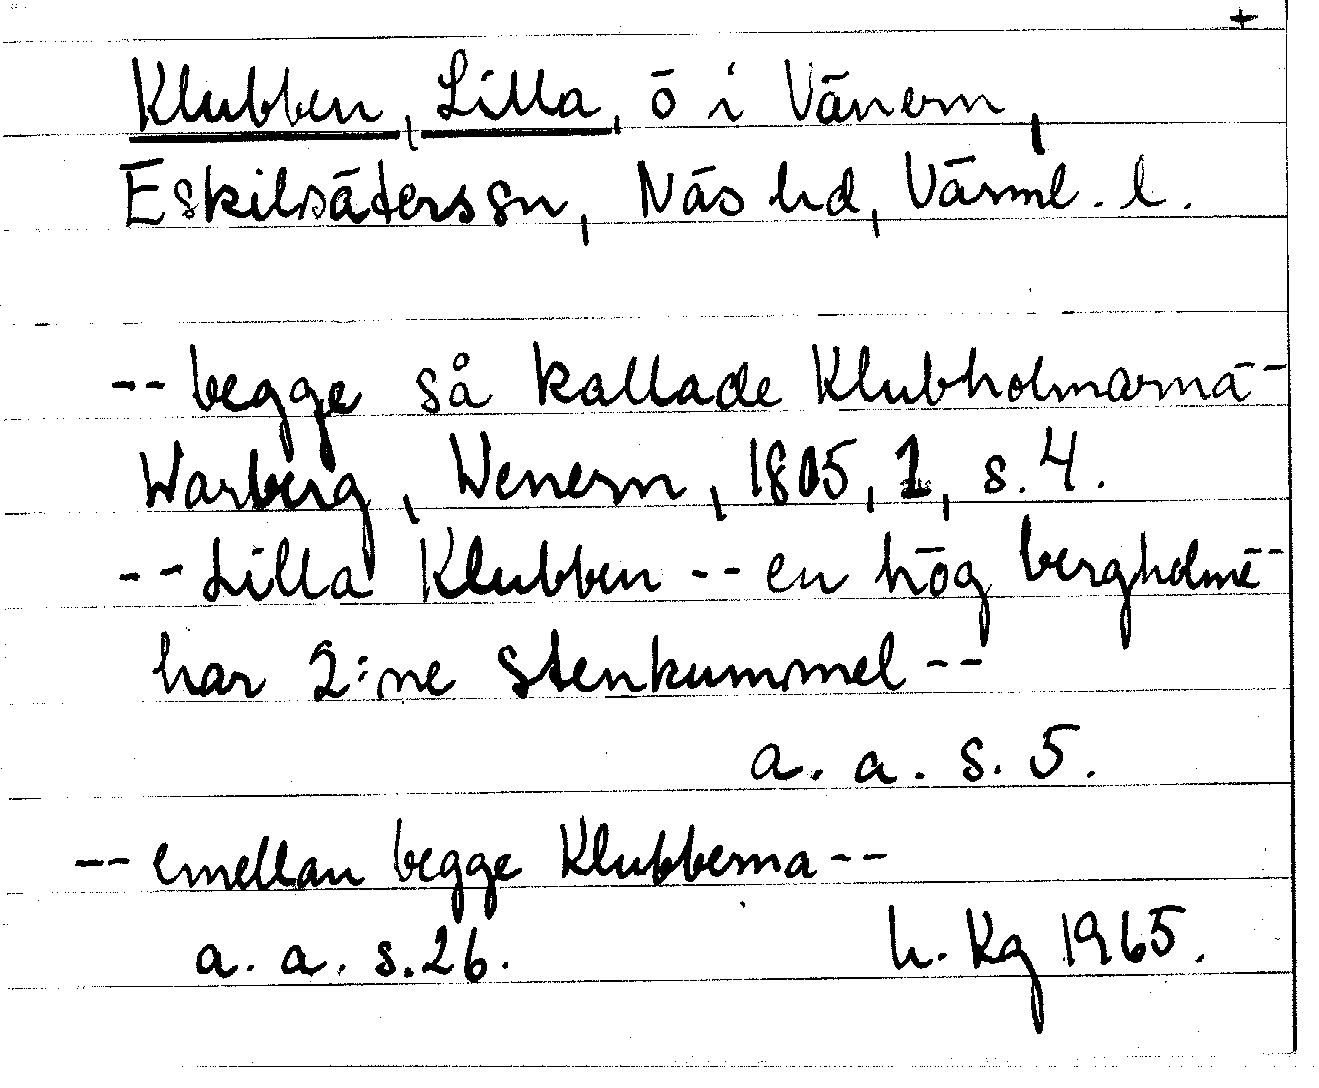 +
Klubben, Lilla, ö i Vänern,
Eskilsäterssn, Näs hd, Värml. l.
-- begge så kallade Klubholmarna --
Warberg, Wenern, 1805, 1, s. 4.
-- Lilla Klubben -- en hög bergholme --
har 2:ne stenkummel --
a. a. s. 5.
-- emellan begge Klubberna --
a. a. s. 26. h. Kg 1965.